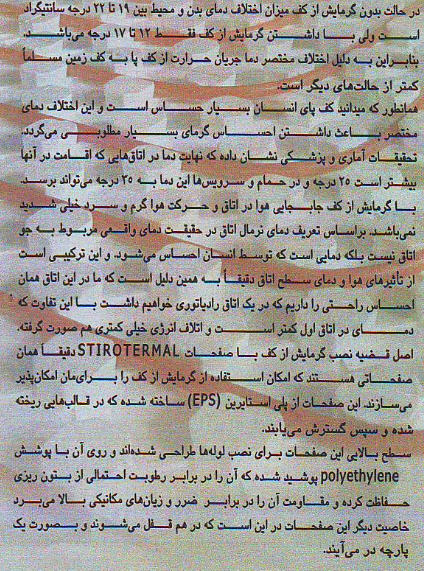 در حالت بدون گرمایش از کف میزان اختلاف دمای بدن و محیط بین ۱۹ تا ۲۲ درجه سانتیگراد
است ولی با داشتن گرمایش از کف فقط ۱۲ تا ۱۷ درجه می‌باشد.
بنابراین به دلیل اختلاف مختصر دما جریان حرارت از کف پا به کف زمین مسلماً
کمتر از حالت‌های دیگر است.
همانطور که میدانید کف پای انسان بسیار حساس است و این اختلاف دمای
مختصر باعث داشتن احساس گرمای بسیار مطلوبی می‌گردد.
تحقیقات آماری و پزشکی نشان داده که نهایت دما در اتاق‌هایی که اقامت در آنها
بیشتر است ۲۵ درجه و در حمام و سرویس‌ها این دما به ۳۵ درجه می‌تواند برسد.
با گرمایش از کف جابجایی هوا در اتاق و حرکت هوا گرم و سرد خیلی شدید
نمی‌باشد. براساس تعریف دمای نرمال اتاق در حقیقت دمای واقعی مربوط به جو
اتاق نیست بلکه دمایی است که توسط انسان احساس می‌شود. و این ترکیبی است
از تأثیرهای هوا و دمای سطح اتاق دقیقاً به همین دلیل است که ما در این اتاق همان
احساس راحتی را داریم که در یک اتاق رادیاتوری خواهیم داشت با این تفاوت که
دمای در اتاق اول کمتر است و اتلاف انرژی خیلی کمتری هم صورت گرفته.
اصل قضیه نصب گرمایش از کف با صفحات STIROTERMAL دقیقاً همان
صفحاتی هستند که امکان استفاده از گرمایش از کف را برای‌مان امکان‌پذیر
می‌سازند. این صفحات از پلی استایرین (EPS) ساخته شده که در قالب‌هایی ریخته
شده و سپس گسترش می‌یابند.
سطح بالایی این صفحات برای نصب لوله‌ها طراحی شده‌اند و روی آن با پوشش
polyethylene پوشید شده که آن را در برابر رطوبت احتمالی از بتون ریزی
حفاظت کرده و مقاومت آن را در برابر ضرر و زیان‌های مکانیکی بالا می‌برد
خاصیت دیگر این صفحات در این است که در هم قفل می‌شوند و بصورت یک
پارچه در می‌آیند.